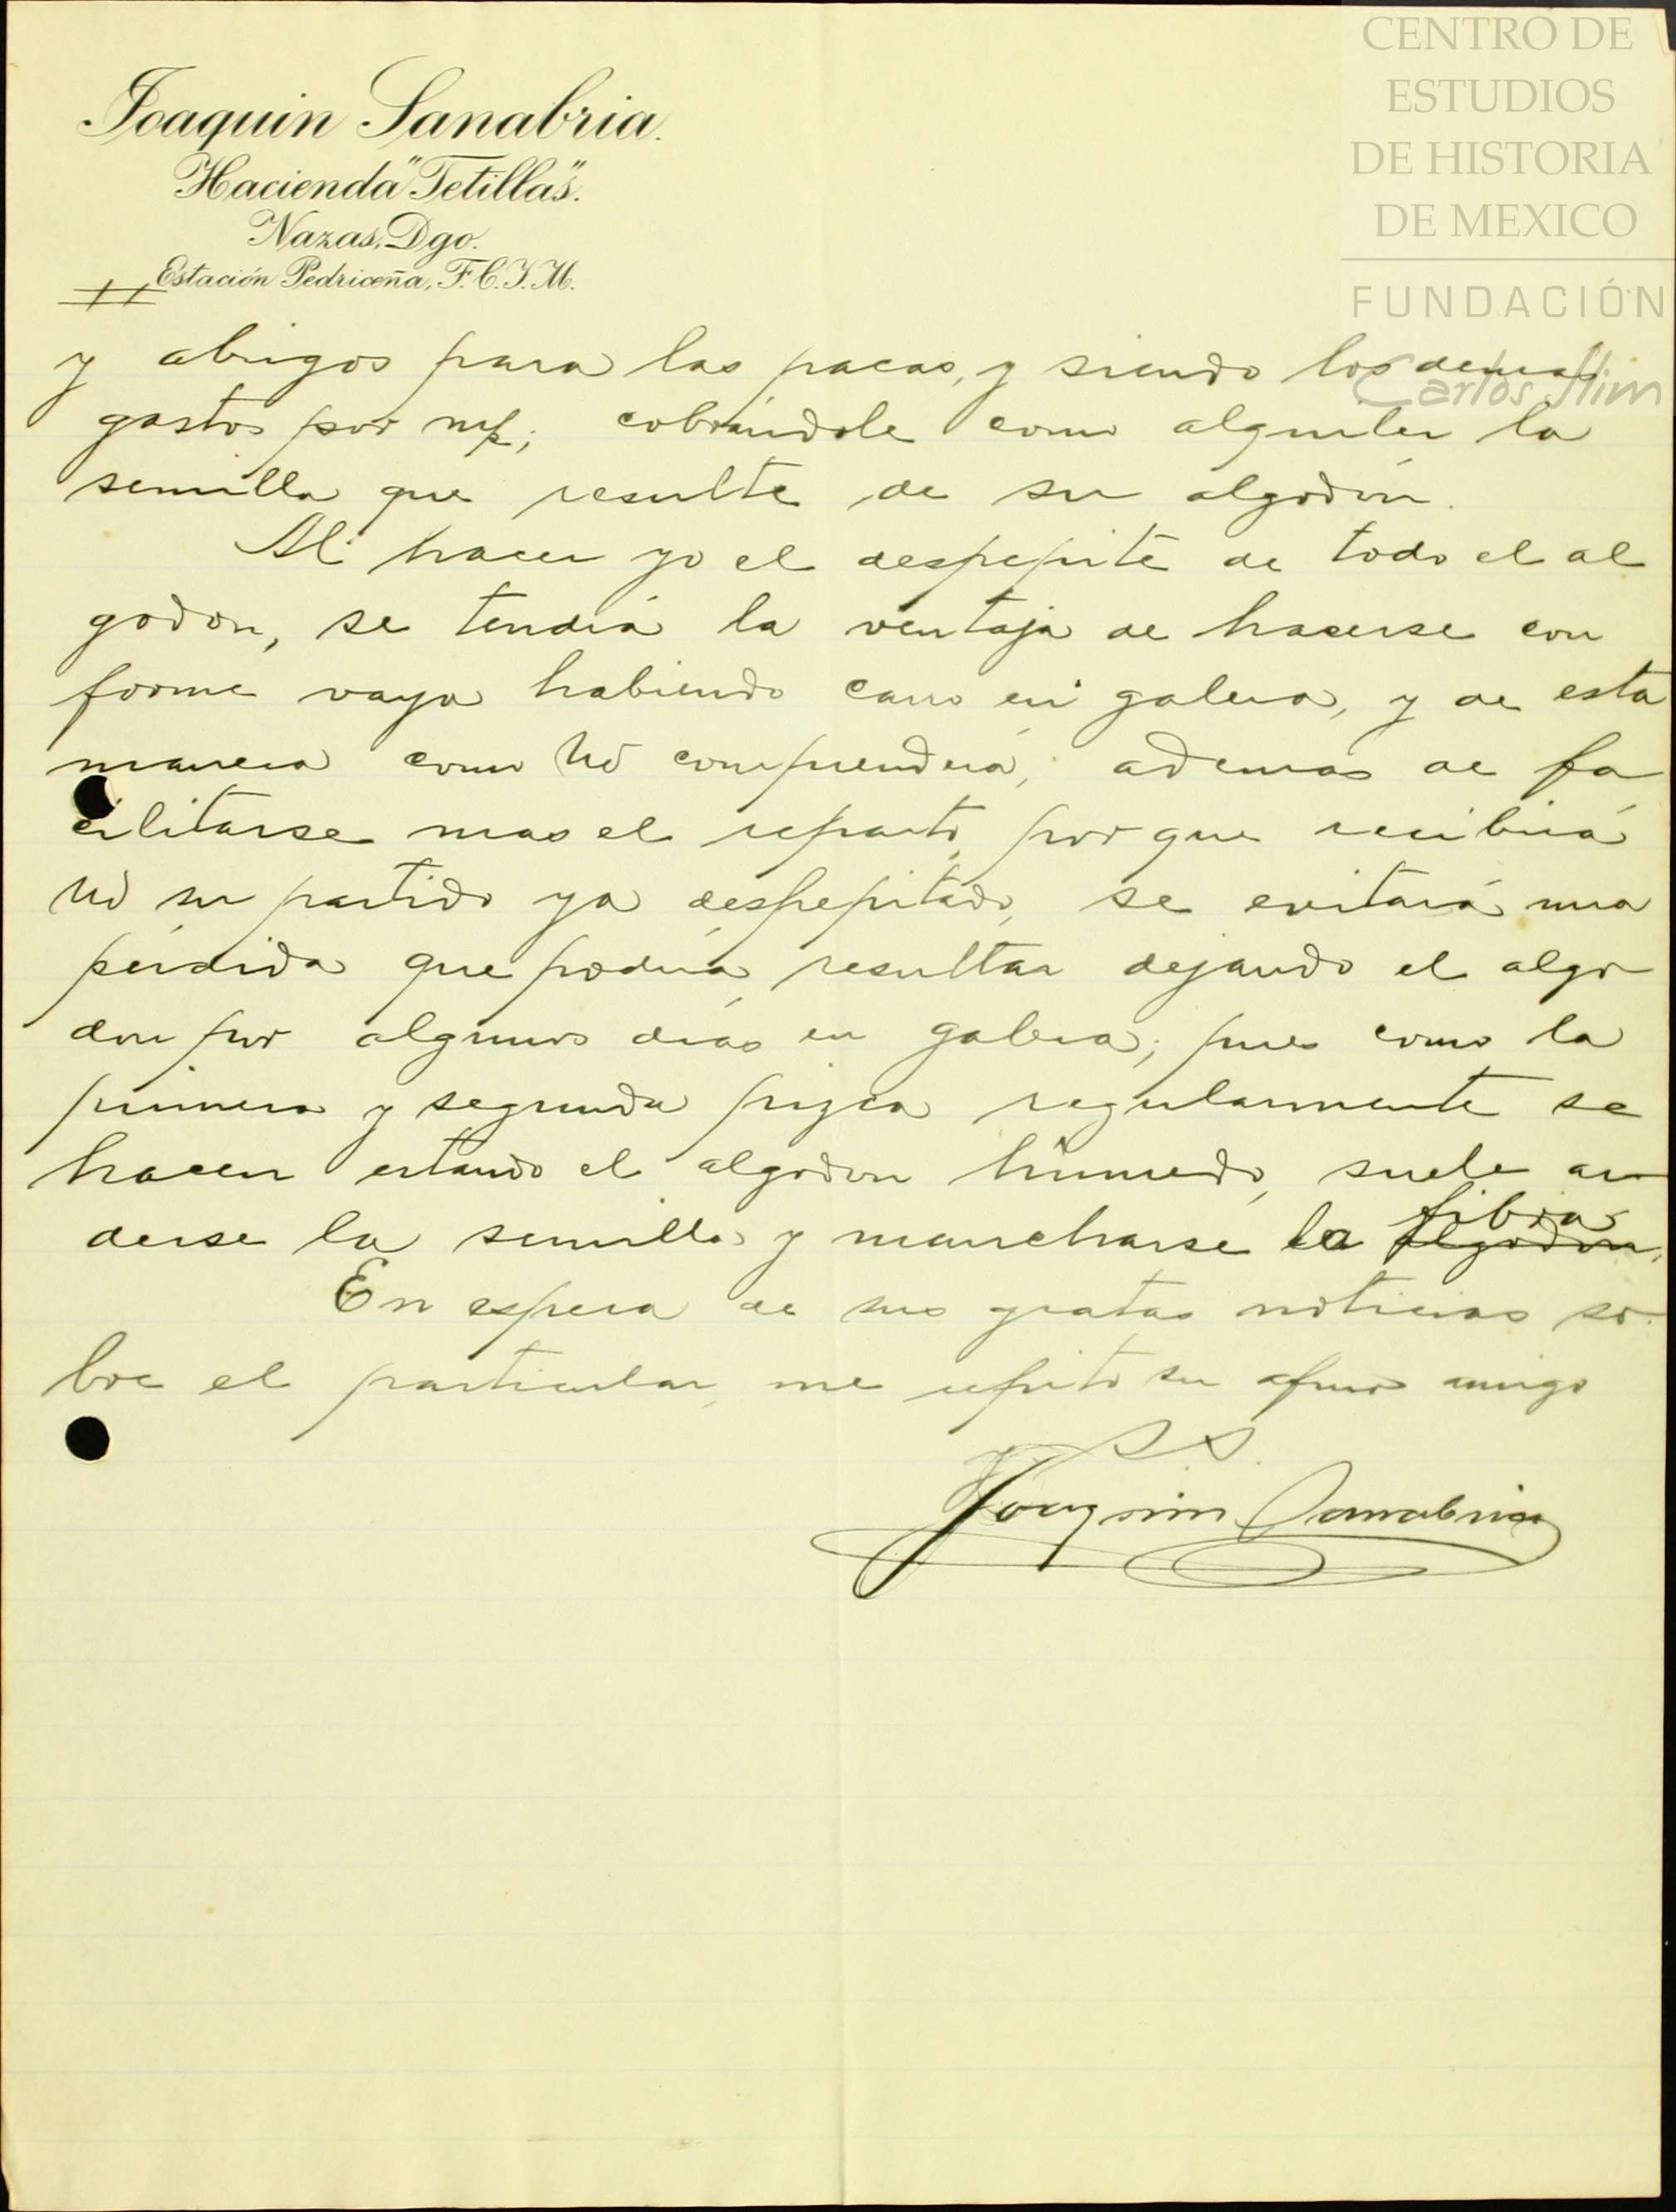 CENTRO DE
ESTUDIOS
DE HISTORIA
DE MEXICO
FUNDACIÓN
Carlos Slim
Joaquin Sanabria.
Hacienda "Tetillas".
Nazas, Dgo.
Estación Pedriceña, F.C.I.M.
y abrigos para las pacas, y siendo los demas
gastos por mi; cobrándole como alquiler la
semilla que resulte de su algodón.
Al hacer yo el despepite de todo el al
godon, se tendrá la ventaja de hacerse con
forme vaya habiendo carro en galera, y de esta
manera como Ud comprenderá, ademas de fa
cilitarse mas el reparto, por que recibirá
Ud su partido ya despepitado, se evitará una
pérdida que podría resultar dejando el algo
don por algunos dias en galera; pues como la
primera y segunda pizca regularmente se
hacen estando el algodon húmedo, suele ar
derse la semilla y mancharse la fibra algodon.
En espera de sus gratas noticias so-
bre el particular, me repito su afmo amigo
y S S.
Joaquin Sanabria